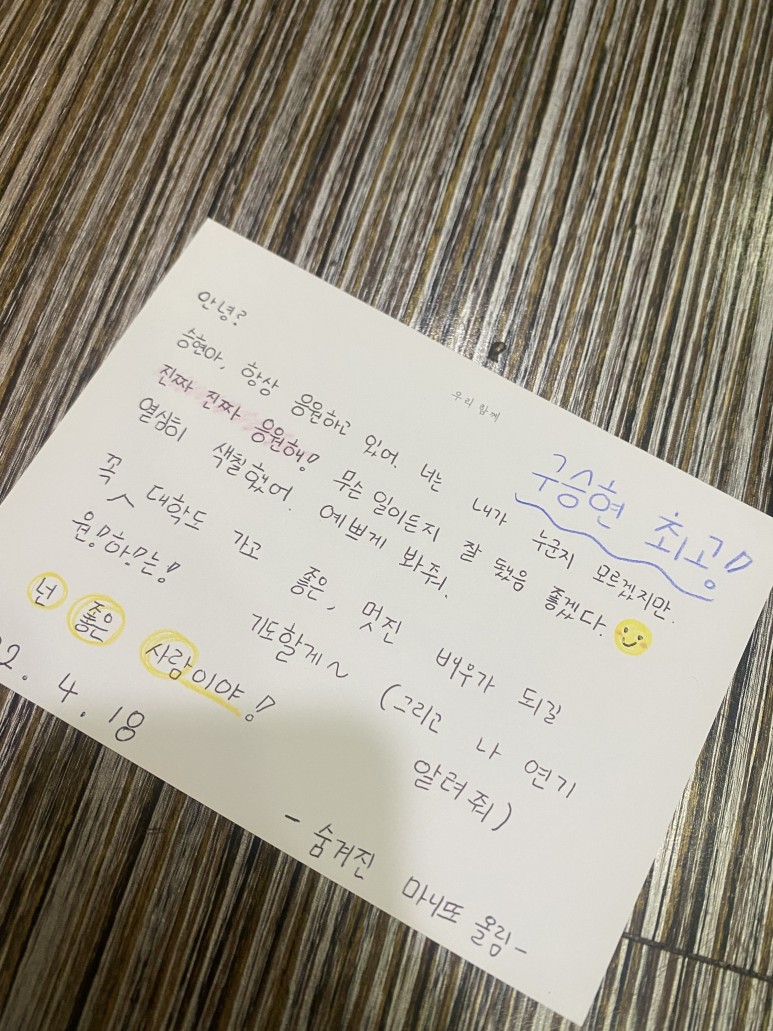 안녕?
우리 함께
구승현 최공!
승현아, 항상 응원하고 있어. 너는 내가 누군지 모르겠지만.
진짜 진짜 응원해! 무슨 일이든지 잘 됐음 좋겠다.
열심히 색칠했어. 예쁘게 봐줘.
꼭 대학도 가고 좋은, 멋진 배우가 되길
원!하!는!
기도할게~ (그리고 나 연기
알려줘)
넌 좋은 사람이야!
2. 4. 18
- 숨겨진 마니또 올림-